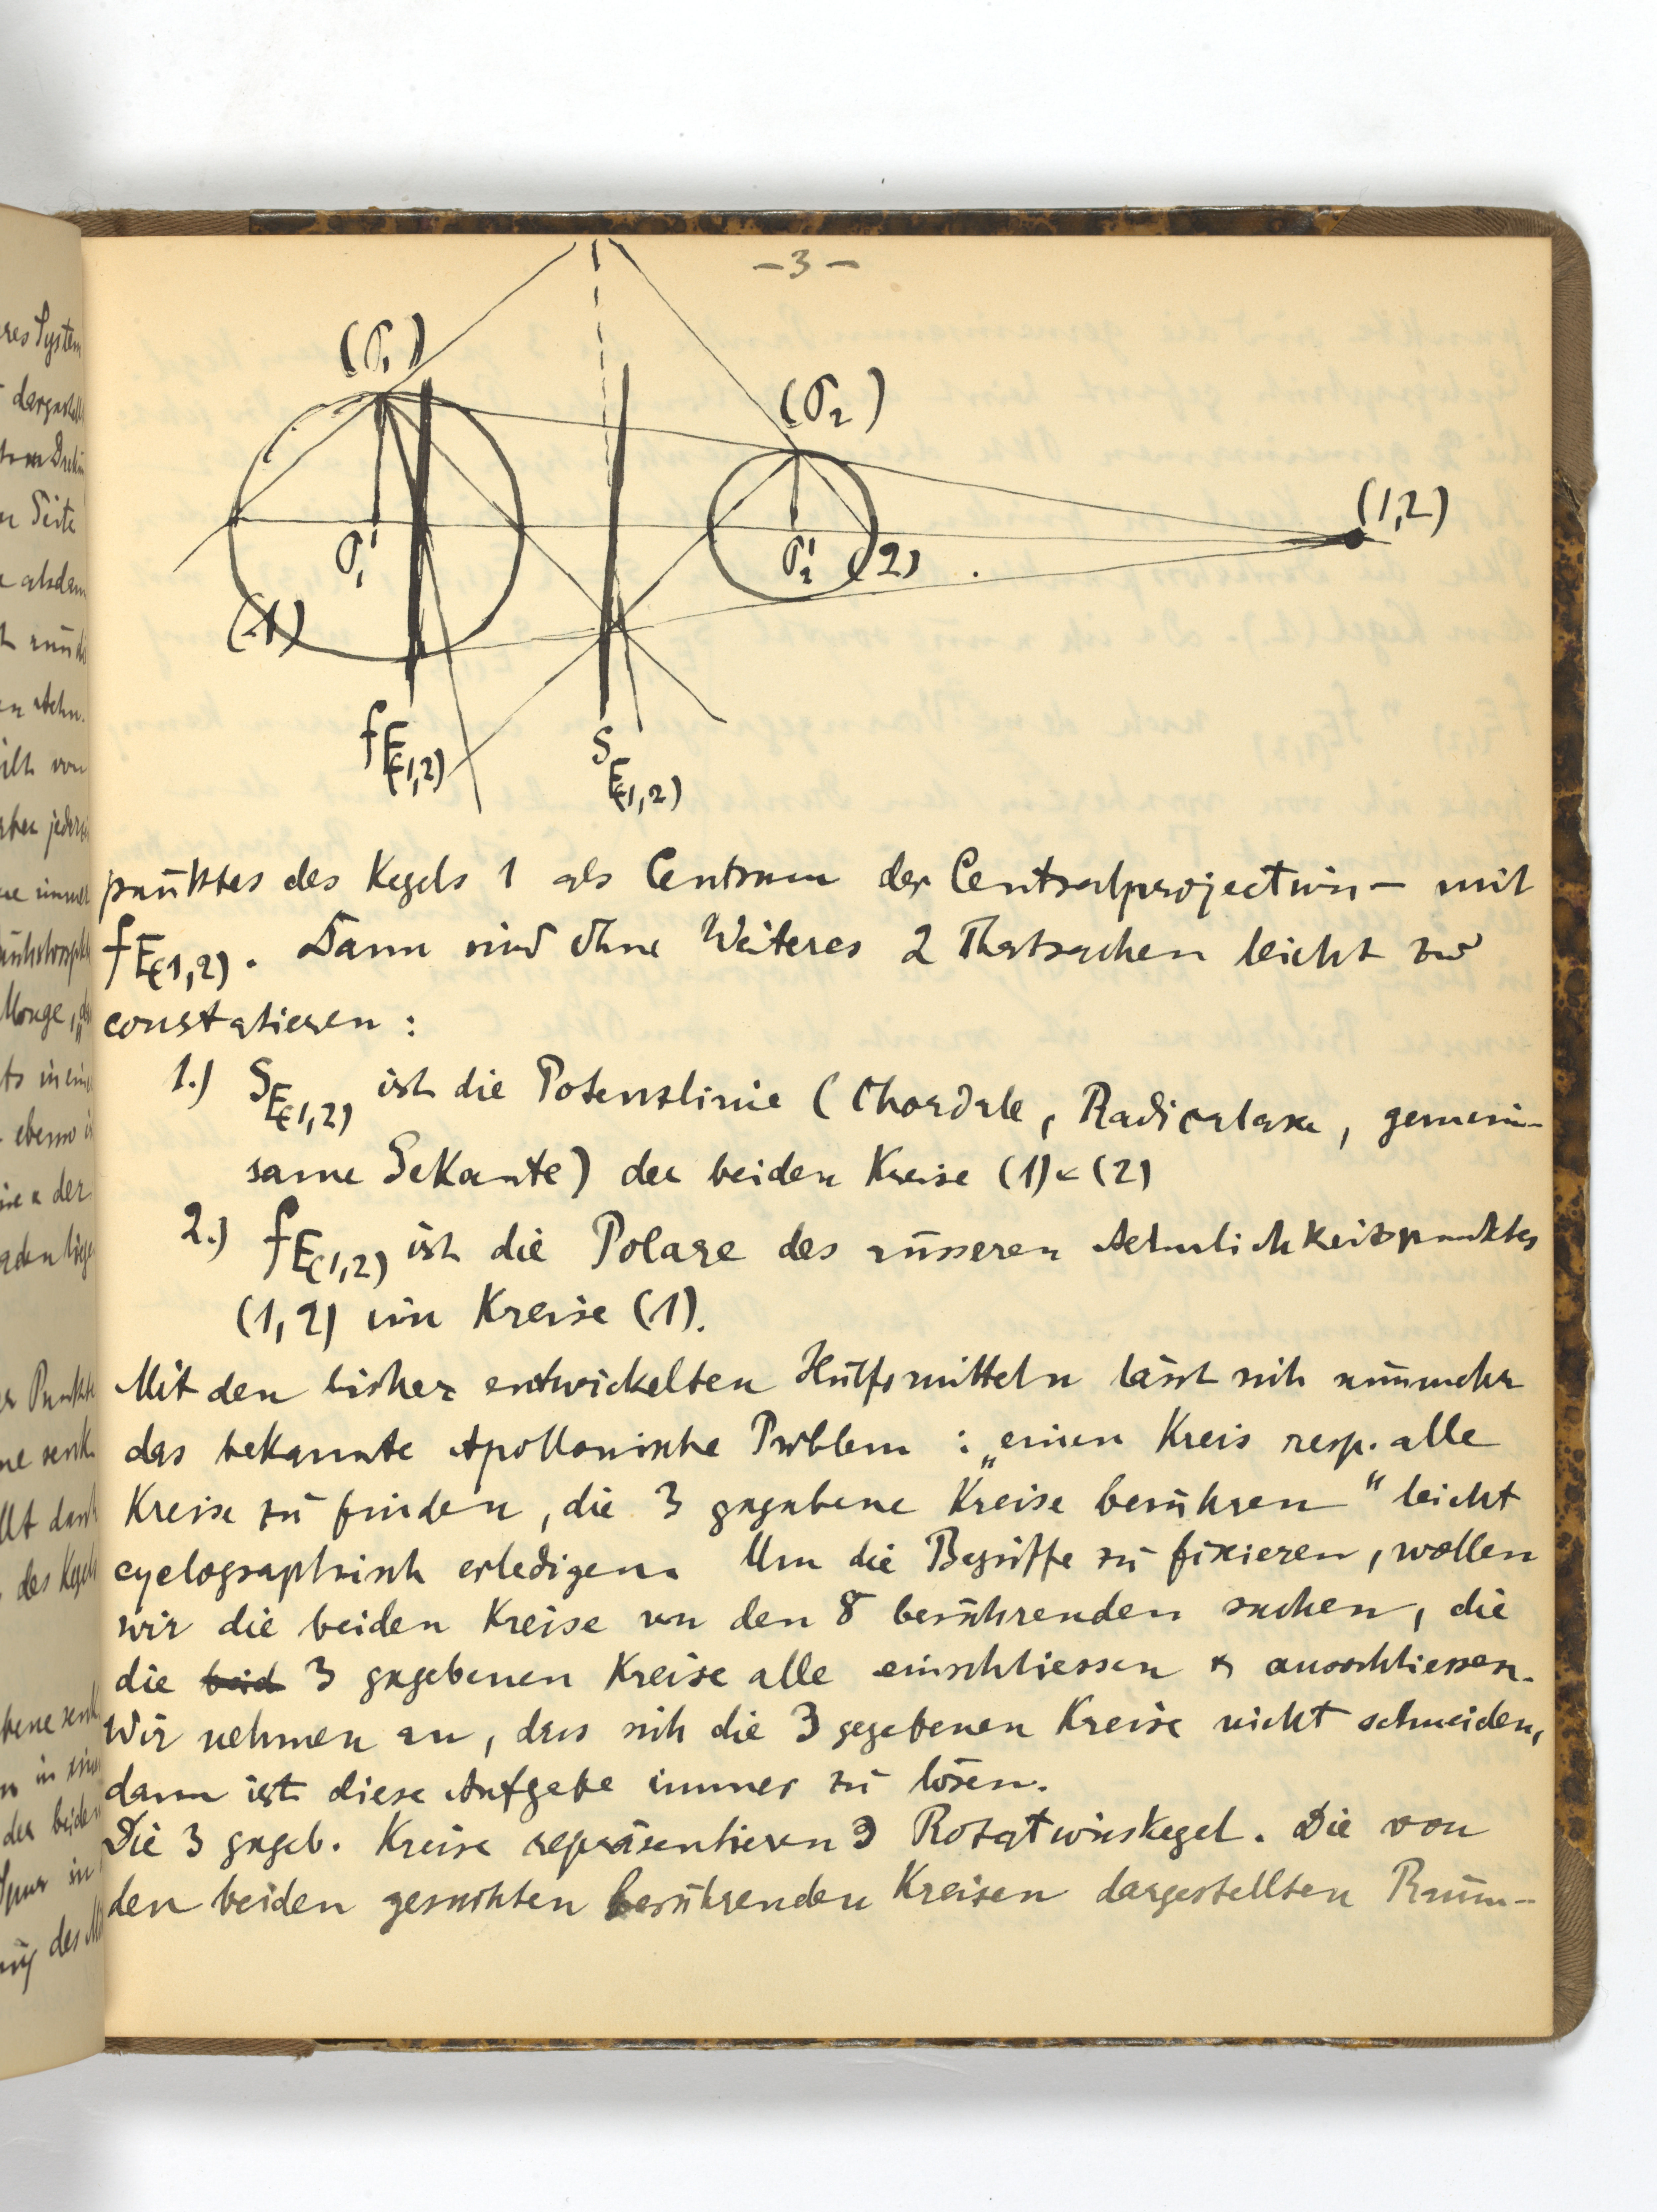 -3-
(σ₁)
(σ₂)
(1,2)
σ₁'
σ₂'
(2)
(1)
fE(1,2)
SE(1,2)
punktes des Kegels 1 als Centrum der Centralprojection – mit
fE(1,2). Dann sind ohne Weiteres 2 Thatsachen leicht zu
constatieren :
1.) SE(1,2) ist die Potenzlinie (Chordale, Radicalaxe, gemein-
same Sekante) der beiden Kreise (1) & (2)
2.) fE(1,2) ist die Polare des äusseren Aehnlichkeitspunktes
(1,2) im Kreise (1).
Mit den bisher entwickelten Hülfsmitteln lässt sich nunmehr
das bekannte Apollonische Problem : „einen Kreis resp. alle
Kreise zu finden, die 3 gegebene Kreise berühren" leicht
cyclographisch erledigen. Um die Begriffe zu fixieren, wollen
wir die beiden Kreise von den 8 berührenden suchen, die
die beid 3 gegebenen Kreise alle einschliessen & ausschliessen.
Wir nehmen an, dass sich die 3 gegebenen Kreise nicht schneiden,
dann ist diese Aufgabe immer zu lösen.
Die 3 gegeb. Kreise repräsentieren 3 Rotationskegel. Die von
den beiden gesuchten berührenden Kreisen dargestellten Raum-
res System
dargestell
Seite
alsdann
Monge,
ebenso
der
Punkte
des Kegels
der beiden
Spur in
des